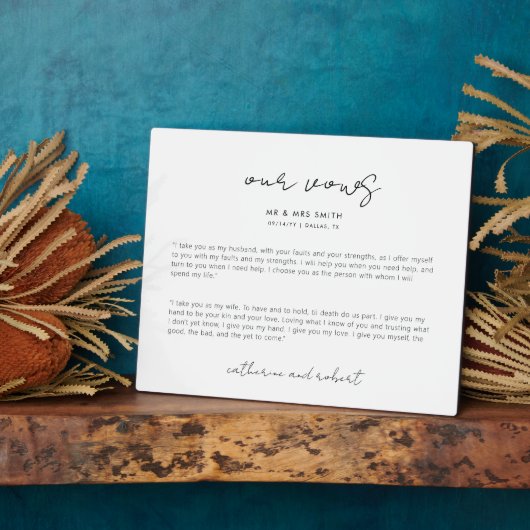 our vows
MR & MRS SMITH
09/14/YY | DALLAS, TX
"I take you as my husband, with your faults and your strengths, as I offer myself
to you with my faults and my strengths. I will help you when you need help, and
turn to you when I need help. I choose you as the person with whom I will
spend my life."
"I take you as my wife. To have and to hold, til death do us part. I give you my
hand to be your kin and your love. Loving what I know of you and trusting what
I don't yet know, I give you my hand. I give you my love. I give you myself, the
good, the bad, and the yet to come."
catherine and robert